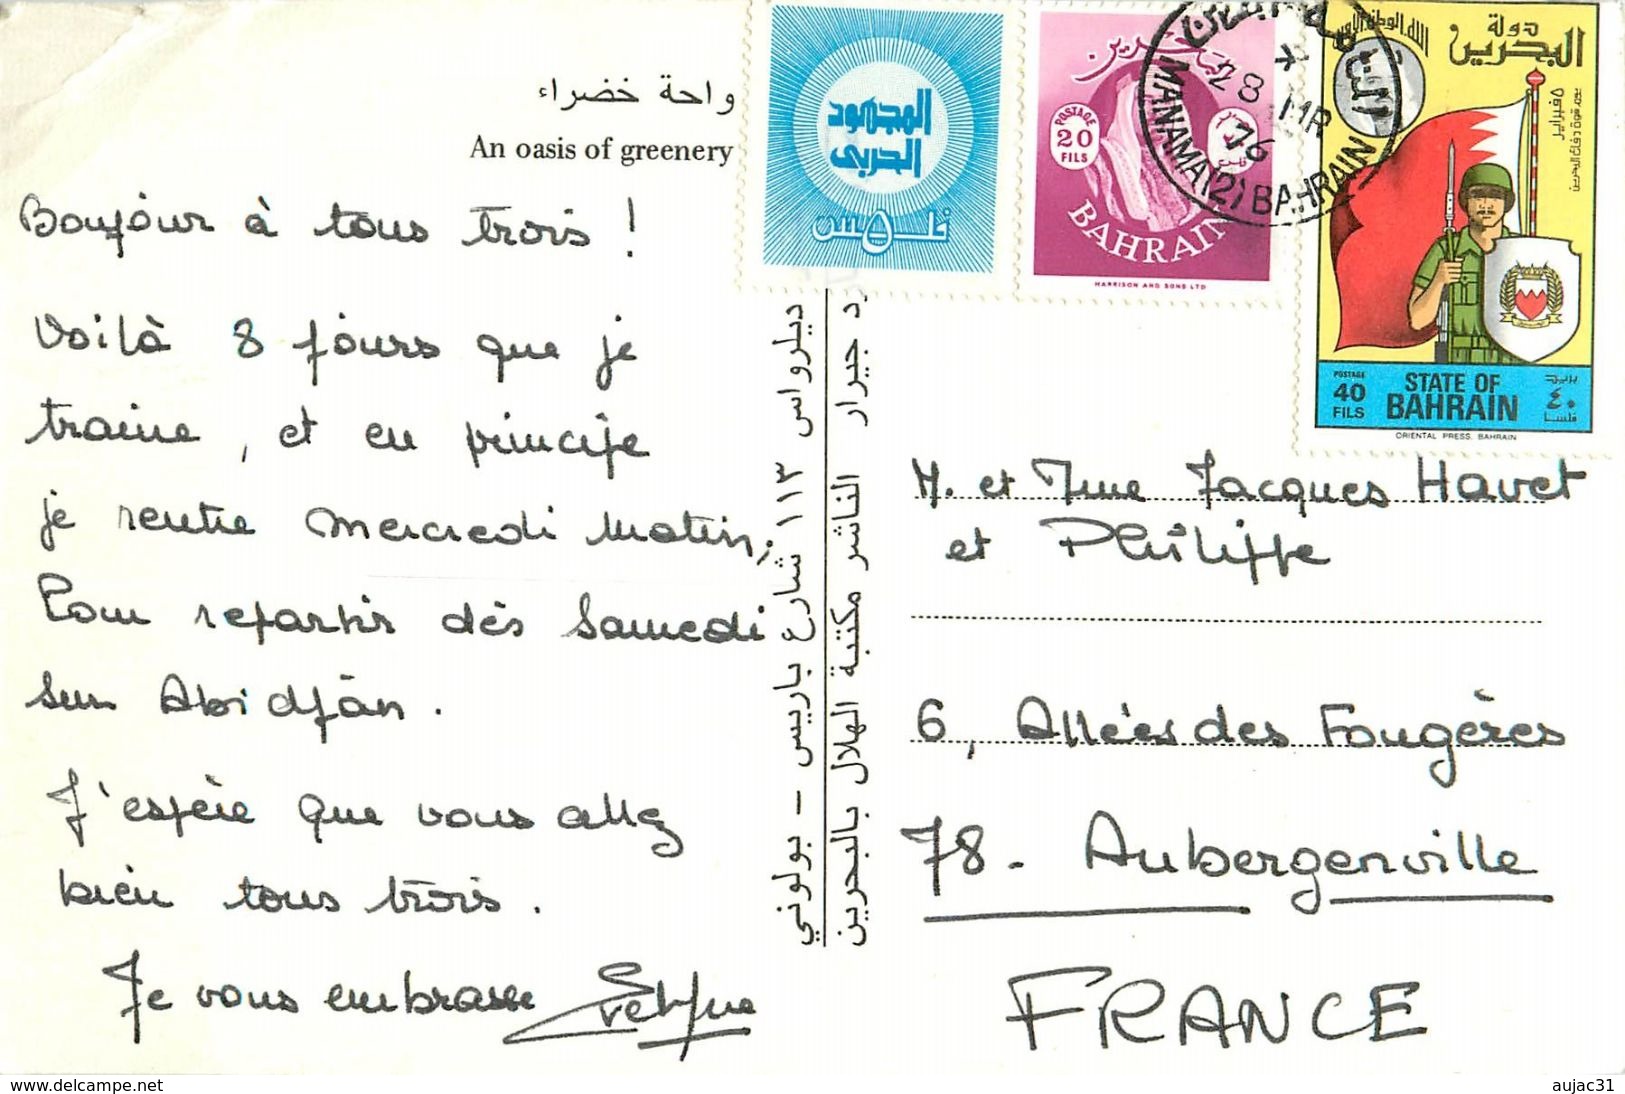 واحة خضراء
An oasis of greenery
Bonjour à tous trois !
Voilà 8 jours que je
traine, et en principe
je rentre mercredi matin,
Pour repartir dès Samedi
sur Abidjan.
J'espère que vous allez
bien tous trois.
Je vous embrasse
ديلرواس ١١٣ شارع باريس - بولوني
رد جيرار الناشر مكتبة الهلال بالبحرين
المجهود
الحربي
٥ فلس
POSTAGE
20
FILS
BAHRAIN
HARRISON AND SONS LTD
28 MR
76
MANAMA (2) BAHRAIN
دولة
البحرين
الله الوطن الأمير
٥ فبراير
يوم قوة دفاع البحرين
POSTAGE
40
FILS
STATE OF
BAHRAIN
بريد
٤٠
فلسا
ORIENTAL PRESS. BAHRAIN
M. et Mme Jacques Havet
et Philippe
6, Allées des Fougères
78 - Aubergenville
FRANCE
www.delcampe.net
aujac31